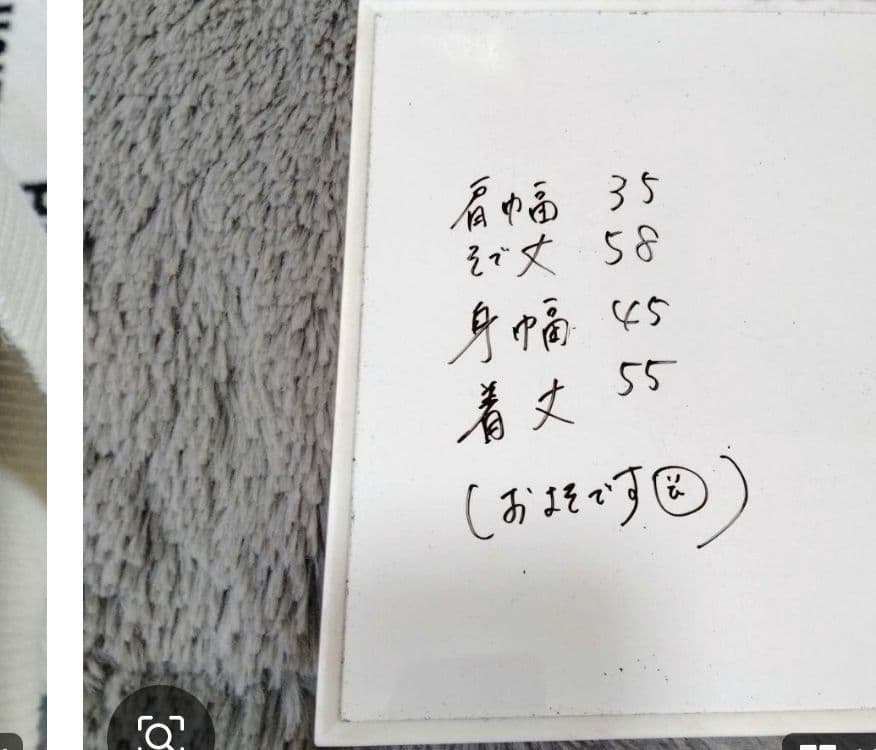 肩幅 35
そで丈 58
身幅 45
着丈 55
(およそです)